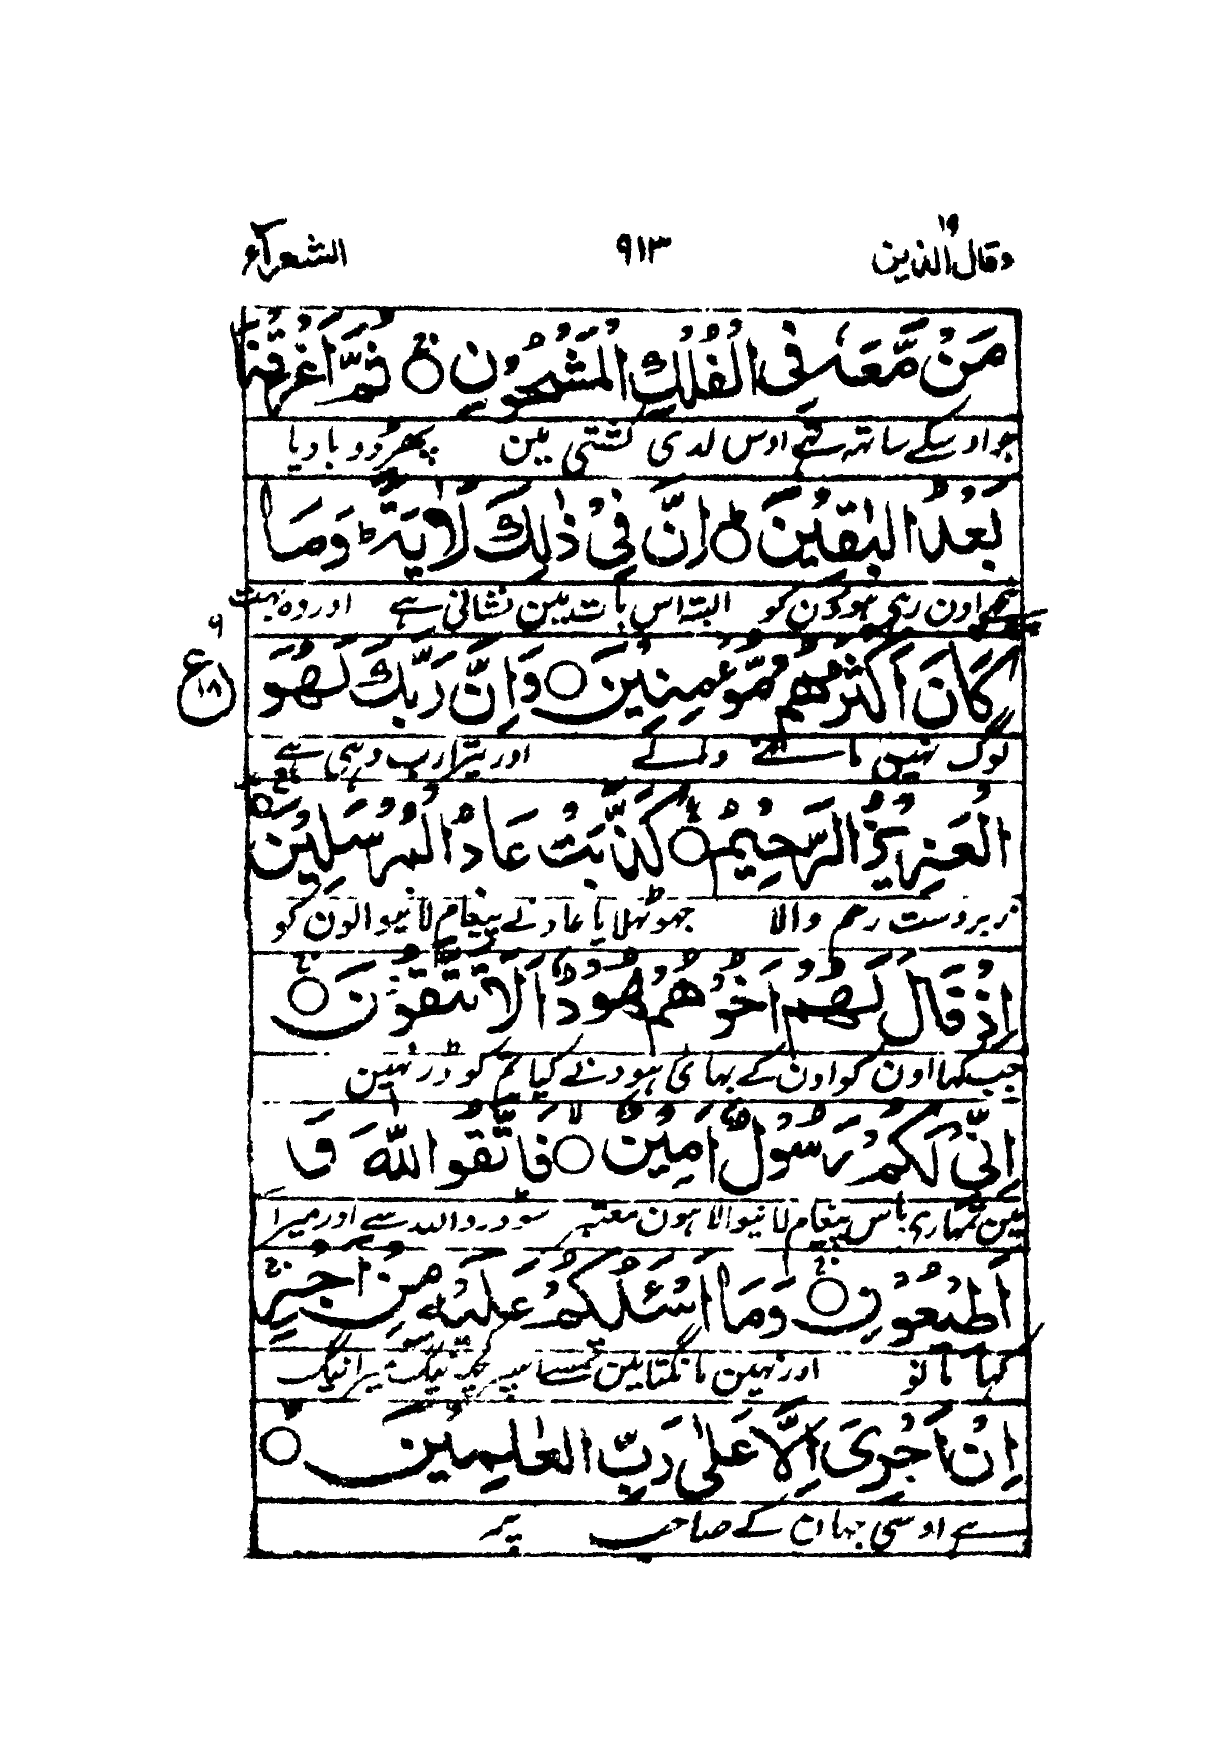 وقال الذین ۱۹ ۹۱۳ الشعرآء
مَنْ مَّعَهٗ فِی الْفُلْكِ الْمَشْحُوْنِ ۝ ثُمَّ اَغْرَقْنَا
جو اوسکے ساتہہ تہے اوس لدی کشتی مین پھر ڈوبا دیا
بَعْدُ الْبٰقِیْنَ ۝ اِنَّ فِیْ ذٰلِكَ لَاٰیَةً ؕ وَمَا
پیچھے اون رہی ہوؤن کو البتہ اس بات مین نشانی ہے اور وہ بہت
كَانَ اَكْثَرُهُمْ مُّؤْمِنِیْنَ ۝ وَاِنَّ رَبَّكَ لَهُوَ
۹ ع ۱۸
لوگ نہین ماننے والے اور تیرا رب وہی ہے
الْعَزِیْزُ الرَّحِیْمُ ۝ كَذَّبَتْ عَادُ الْمُرْسَلِیْنَ ۝
زبردست رحم والا جھوٹھلایا عاد نے پیغام لانیوالون کو
اِذْ قَالَ لَهُمْ اَخُوْهُمْ هُوْدٌ اَلَا تَتَّقُوْنَ ۝
جب کہا اون کو اون کے بہائی ہود نے کیا تم کو ڈر نہین
اِنِّیْ لَكُمْ رَسُوْلٌ اَمِیْنٌ ۝ فَاتَّقُوا اللّٰهَ وَ
مین تمہاری پاس پیغام لانیوالا ہون معتبر سو ڈرو اللہ سے اور میرا
اَطِیْعُوْنِ ۝ وَمَاۤ اَسْـَٔلُكُمْ عَلَیْهِ مِنْ اَجْرٍ
کہا مانو اور نہین مانگتا مین تمسے اسپر کچھ نیگ میرا نیگ
اِنْ اَجْرِیَ اِلَّا عَلٰی رَبِّ الْعٰلَمِیْنَ ۝
ہے اوسی جہان کے صاحب پر